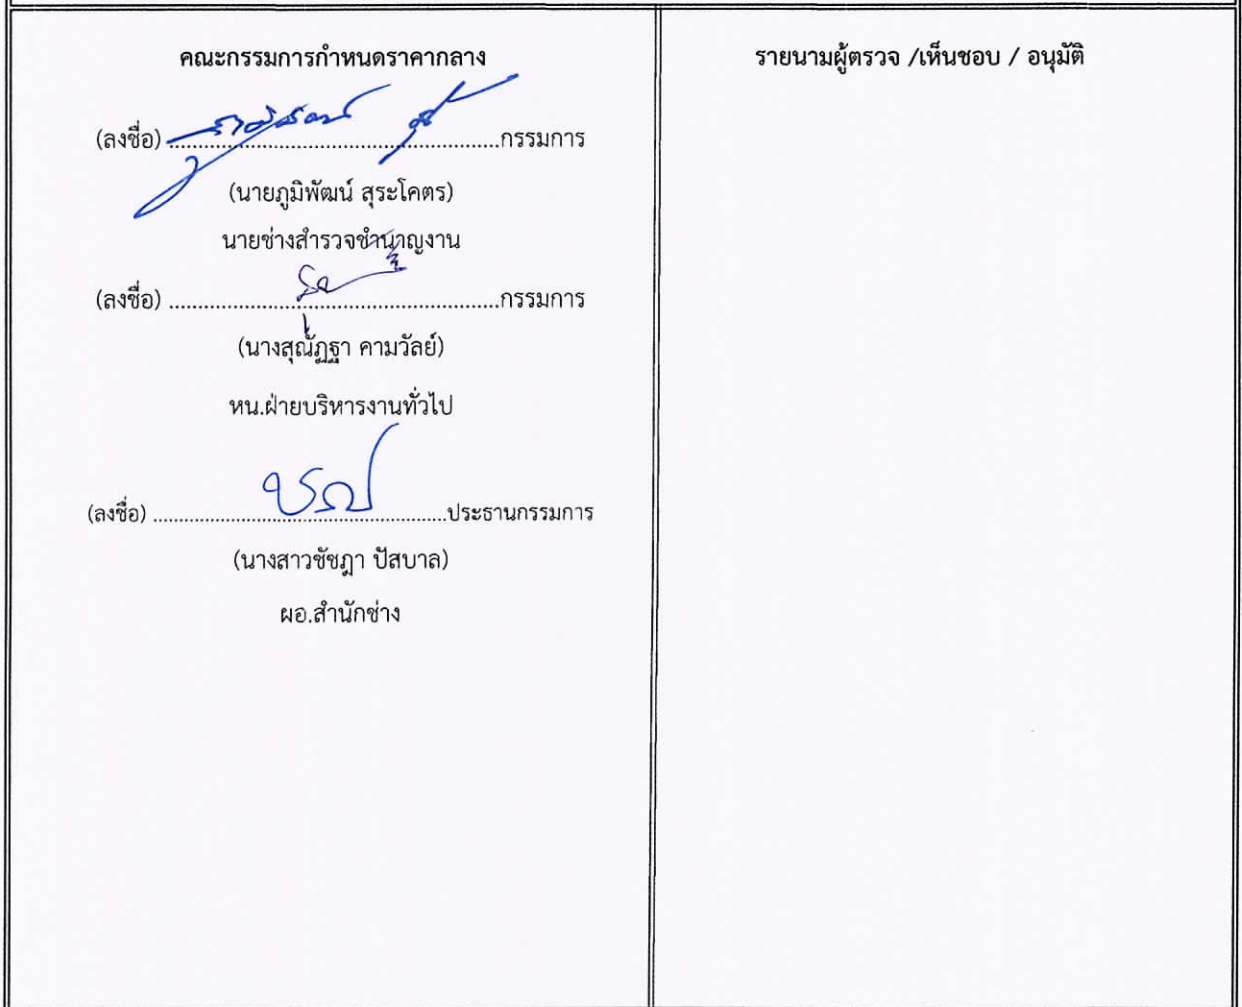 คณะกรรมการกำหนดราคากลาง
(ลงชื่อ) ........................................................กรรมการ
(นายภูมิพัฒน์ สุระโคตร)
นายช่างสำรวจชำนาญงาน
(ลงชื่อ) ........................................................กรรมการ
(นางสุณัฏฐา คามวัลย์)
หน.ฝ่ายบริหารงานทั่วไป
(ลงชื่อ) ..................................................ประธานกรรมการ
(นางสาวชัชฎา ปัสบาล)
ผอ.สำนักช่าง
รายนามผู้ตรวจ /เห็นชอบ / อนุมัติ